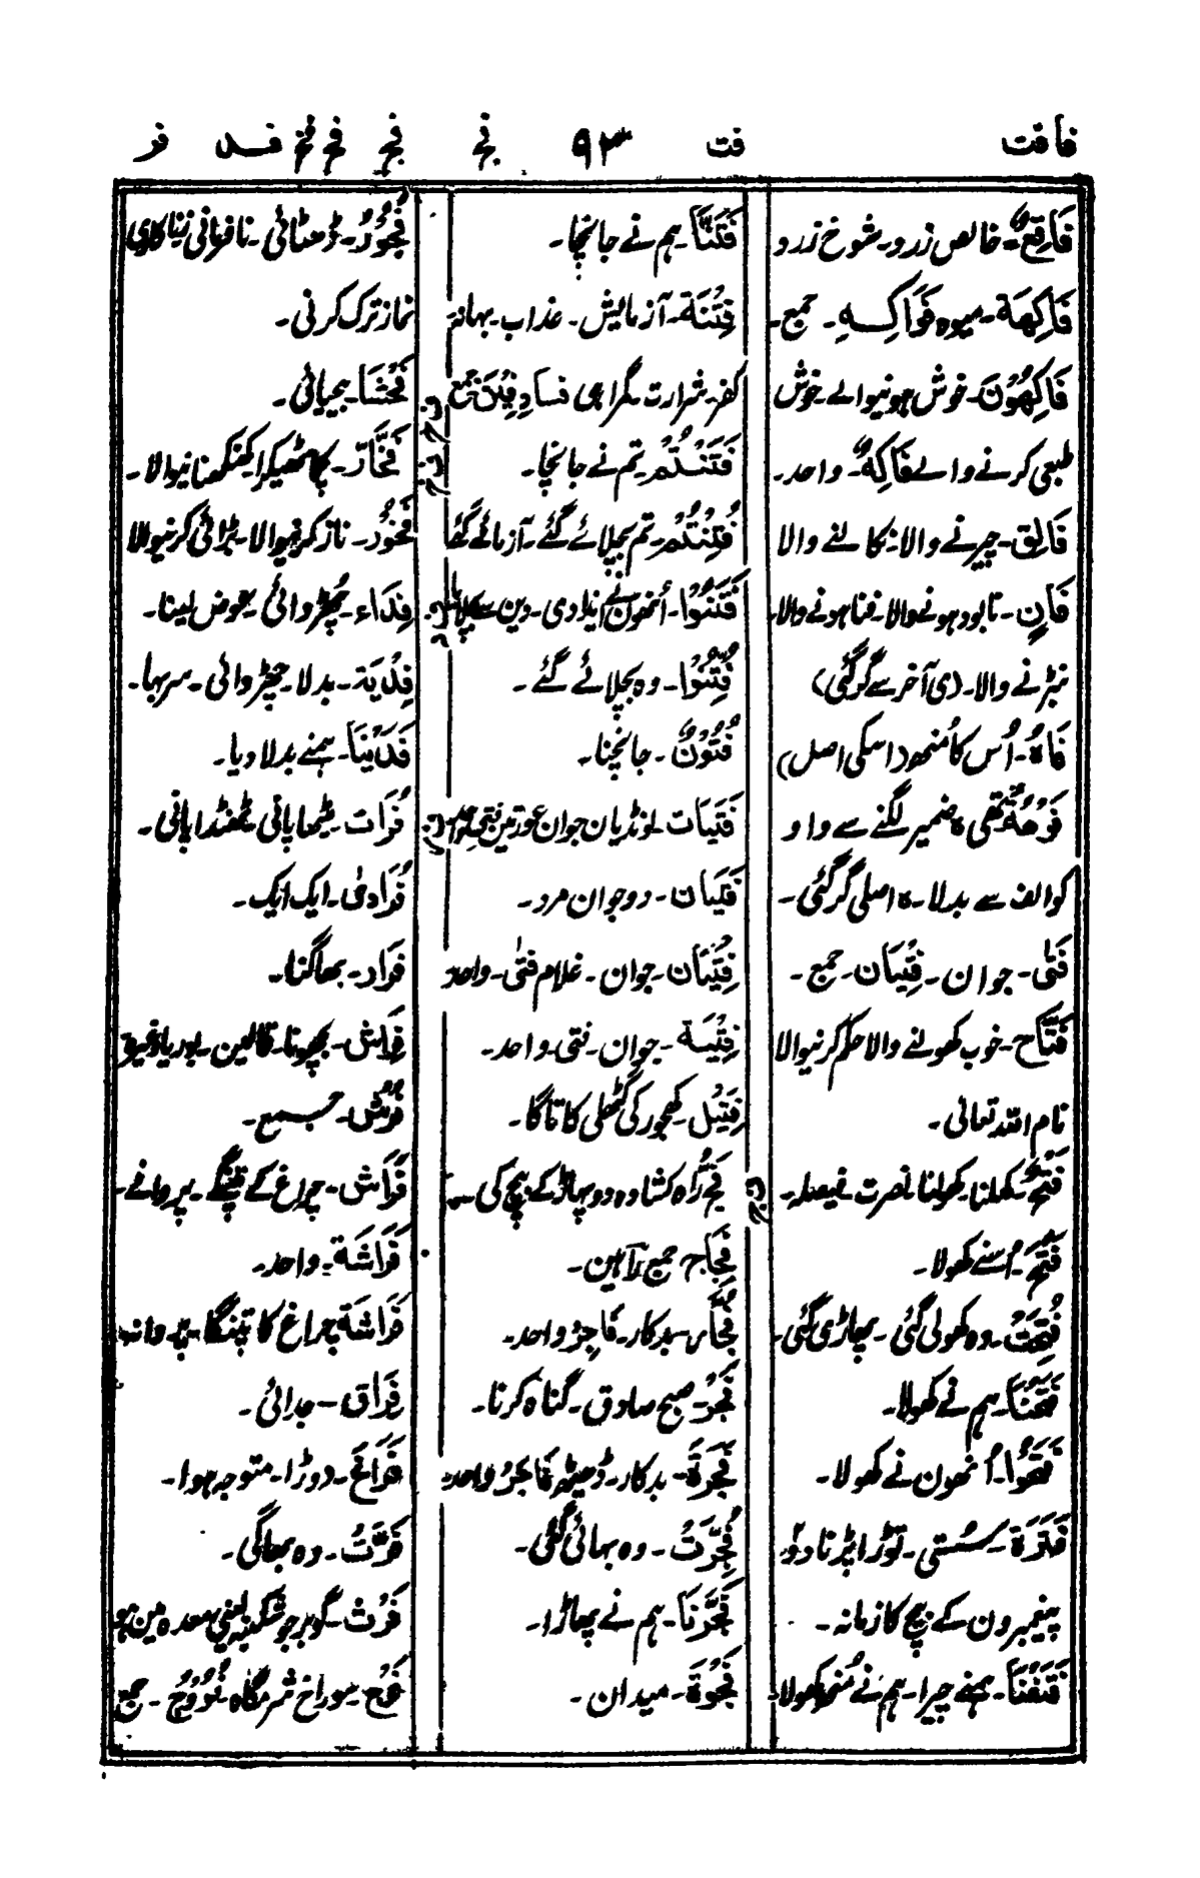 فا فت فت ۹۳ فج فج فح فخ فد فر
فَاقِعٌ۔ خالص زرد۔ شوخ زرد
فَاكِهَة۔ میوہ فَوَاكِهِ۔ جمع۔
فَاكِهُوْنَ۔ خوش ہونیوالے۔ خوش
طبعی کرنے والے فَاكِهٌ۔ واحد۔
فَالِق۔ چیرنے والا۔ نکالنے والا
فَانٍ۔ نابود ہونے والا۔ فنا ہونے والا۔
نبڑنے والا۔ (ی آخر سے گر گئی)
فَاهُ۔ اُس کا مُنھ (اسکی اصل)
فَوْهُهٗ تھی ہ ضمیر لگنے سے واو
کو الف سے بدلا۔ ہ اصلی گر گئی۔
فَتٰى۔ جوان۔ فِتْيَان۔ جمع۔
فَتَّاح۔ خوب کھولنے والا حکم کرنیوالا
نام اللہ تعالی۔
فَتْحٌ۔ کھلنا۔ کھولنا نصرت۔ فیصلہ۔
فَتَحَ۔ اُسنے کھولا۔
فُتِحَتْ۔ وہ کھولی گئی۔ پھاڑی گئی۔
فَتَحْنَا۔ ہم نے کھولا۔
فَتَحُوْا۔ اُنھون نے کھولا۔
فَتْرَة۔ سُستی۔ توڑا پڑنا دو
پیغمبرون کے بیچ کا زمانہ۔
فَتَقْنَا۔ ہمنے چیرا۔ ہم نے مُنھ کھولا۔
فَتَنَّا۔ ہم نے جانچا۔
فِتْنَة۔ آزمایش۔ عذاب۔ بہانہ
کفر۔ شرارت۔ گمراہی فساد فِتَن جمع
فَتَنْتُمْ۔ تم نے جانچا۔
فُتِنْتُمْ۔ تم بچلائے گئے۔ آزمائے گئے
فَتَنُوْا۔ اُنھون نے ایذا دی۔ دین سے بچلایا
فُتِنُوْا۔ وہ بچلائے گئے۔
فُتُوْنٌ۔ جانچنا۔
فَتَيَات۔ لونڈیان جوان عورتین
فَتَيَان۔ دو جوان مرد۔
فِتْيَان۔ جوان۔ غلام فتٰى۔ واحد
فِتْيَة۔ جوان۔ فتی۔ واحد۔
فَتِيْل۔ کھجور کی گٹھلی کا تاگا۔
فَجّ راہ کشادہ دو پہاڑ کے بیچ کی۔
فِجَاج جمع راہین۔
فُجَّار۔ بدکار۔ فَاجِرٌ واحد۔
فَجْرُ۔ صبح صادق۔ گناہ کرنا۔
فَجَرَة۔ بدکار۔ ڈھیٹھ فَاجِرٌ واحد
فُجِّرَتْ۔ وہ بہائی گئی۔
فَجَّرْنَا۔ ہم نے پھاڑا۔
فَجْوَة۔ میدان۔
فُجُوْرٌ۔ ڈھٹائی۔ نافرمانی زناکاری
نماز ترک کرنی۔
فَحْشَا۔ بیحیائی۔
فَخَّار۔ پکا ٹھیکرا کھنکھنانیوالا۔
فَخُوْر۔ ناز کرنیوالا۔ بڑائی کرنیوالا
فِدَاء۔ چُھڑوائی۔ عوض لینا۔
فِدْيَة۔ بدلا۔ چھڑوائی۔ سربہا۔
فَدَيْنَا۔ ہمنے بدلا دیا۔
فُرَات۔ میٹھا پانی ٹھنڈا پانی۔
فُرَادٰى۔ ایک ایک۔
فِرَار۔ بھاگنا۔
فِرَاش۔ بچھونا۔ قالین۔ بوریا وغیرہ
فُرُش۔ جمع۔
فَرَاش۔ چراغ کے پتنگے۔ پروانے۔
فَرَاشَة۔ واحد۔
فَرَاشَة چراغ کا پتنگا۔ پروانہ
فِرَاق۔ جدائی۔
فَرَاغَ۔ دوڑا۔ متوجہ ہوا۔
فَرَّتْ۔ وہ بھاگی۔
فَرْث۔ گوبر جو شکنبہ یعنی معدہ مین ہو
فَرْج۔ سوراخ شرمگاہ فُرُوْجٌ۔ جمع